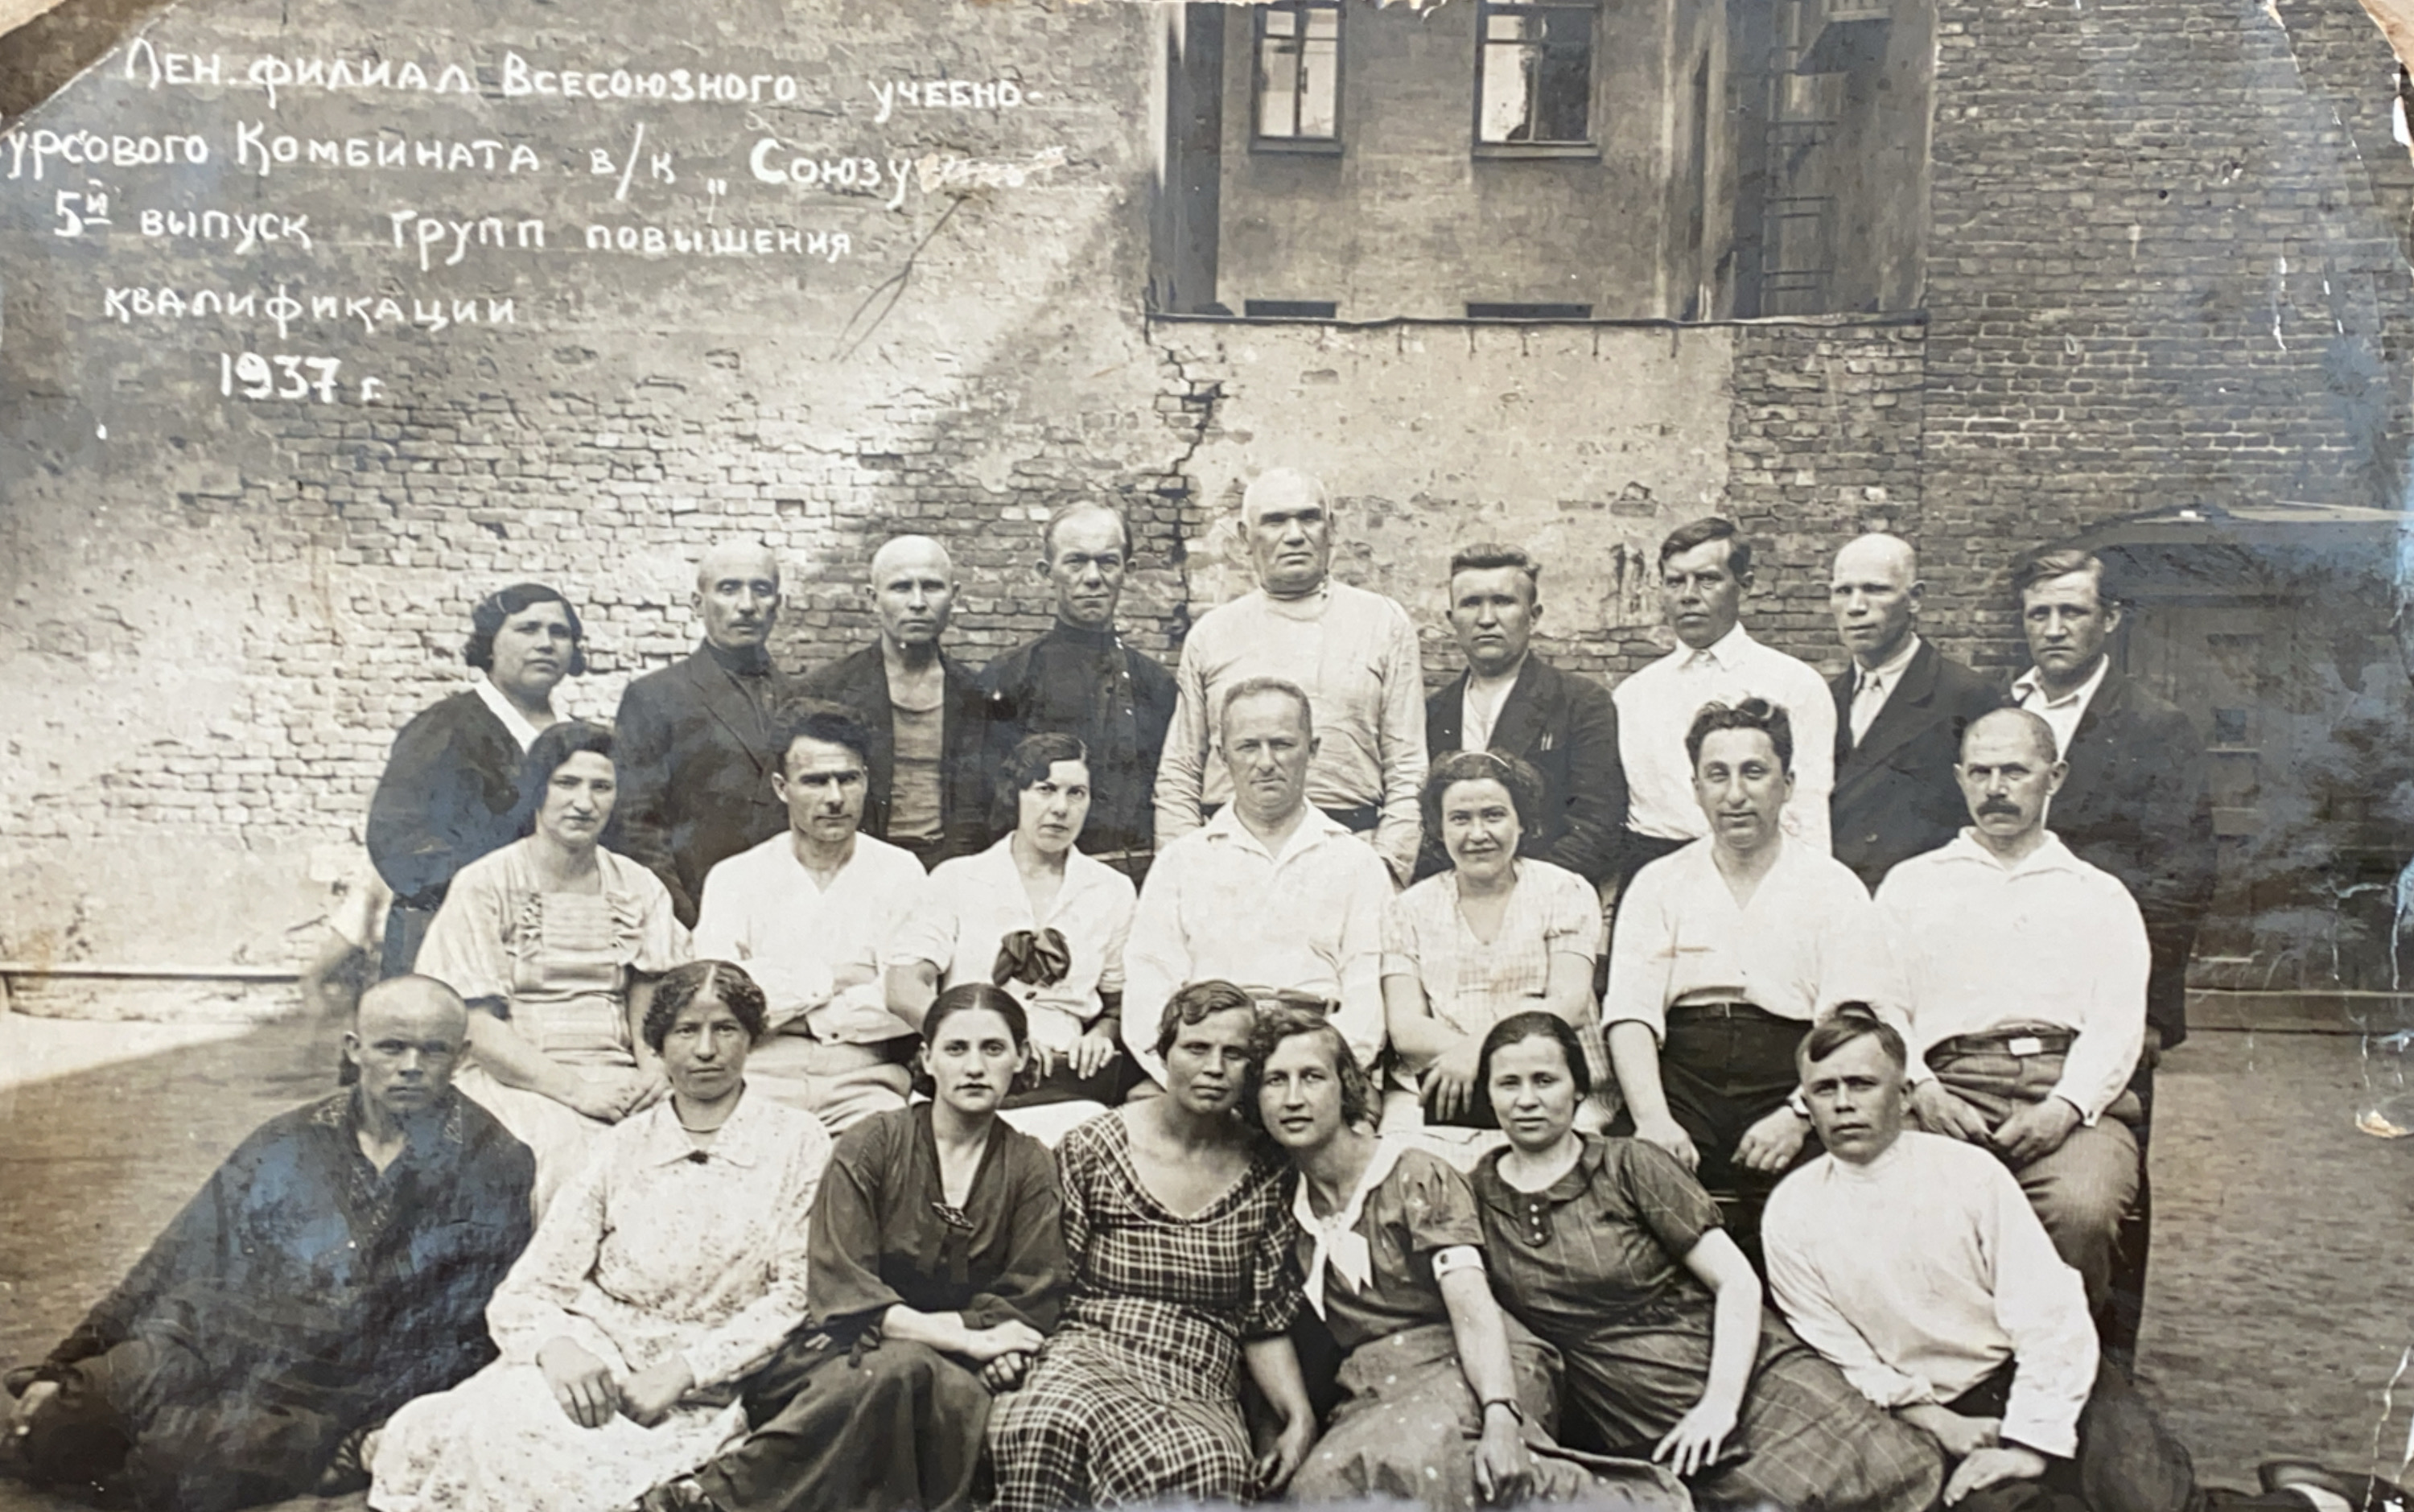 Лен. филиал Всесоюзного учебно-
урсового Комбината в/к „Союзу
5й выпуск групп повышения
квалификации
1937 г.